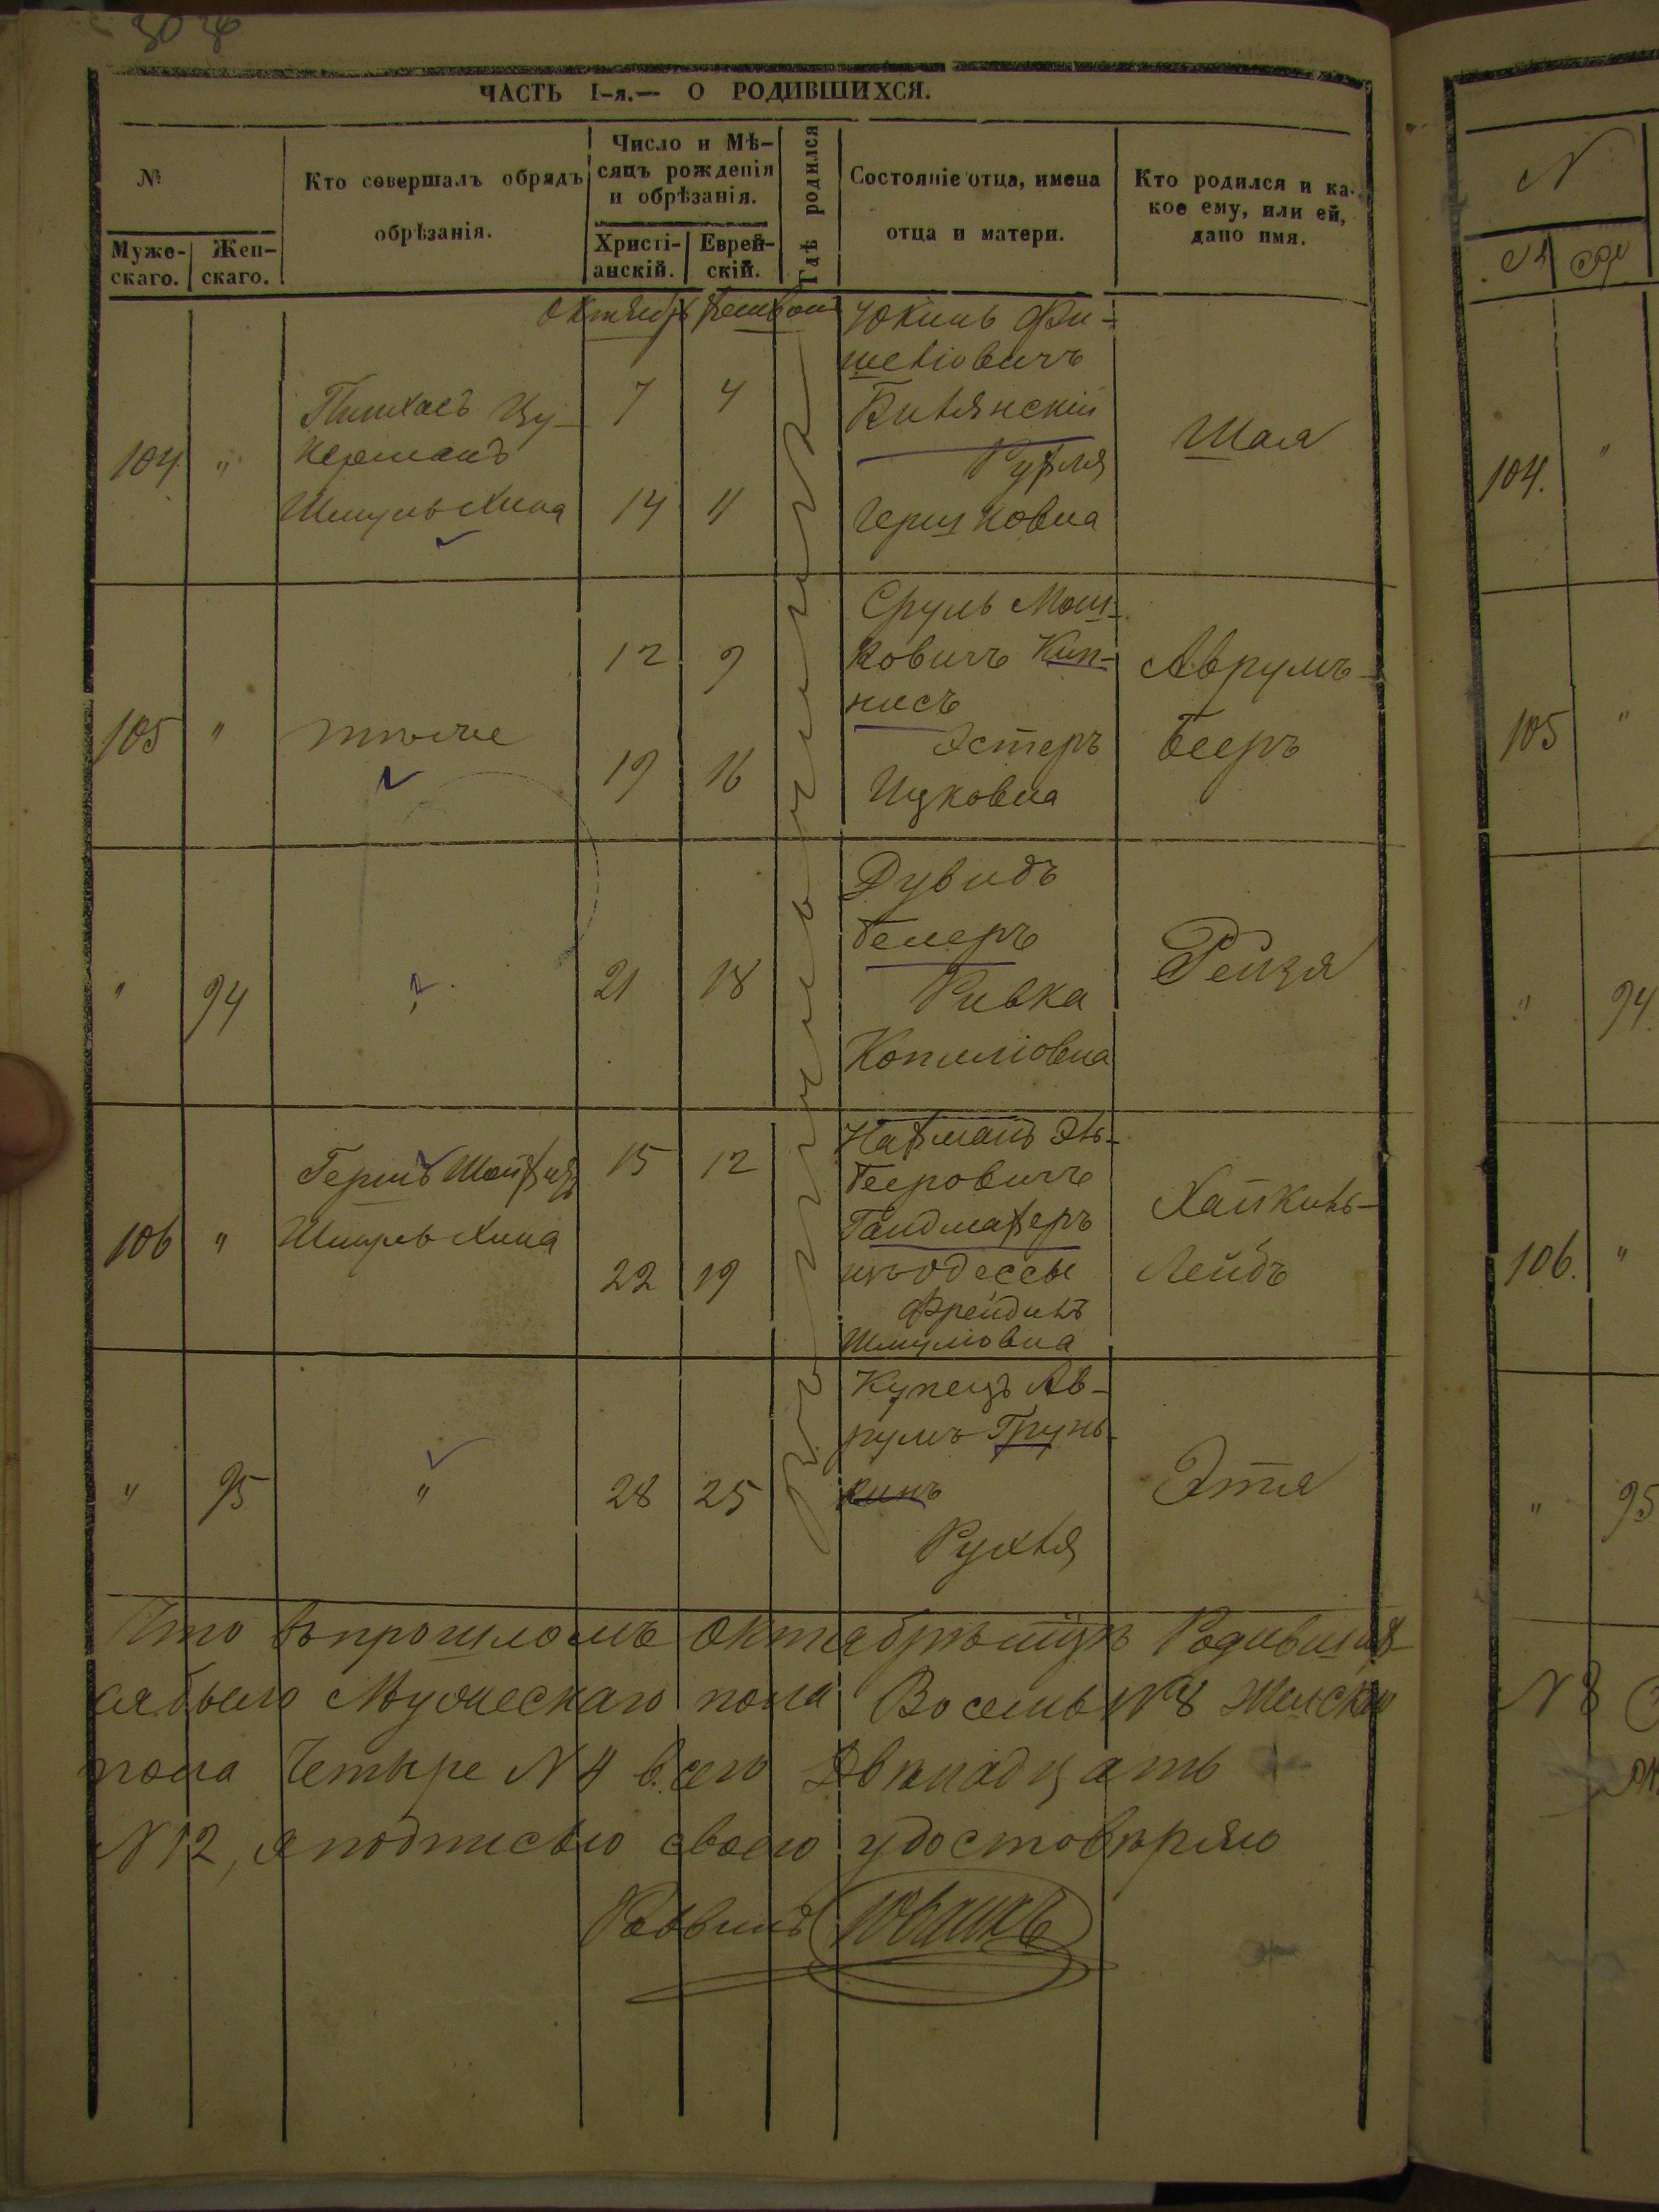 ЧАСТЬ I-я.— О РОДИВШИХСЯ.
№
Муже-
скаго.
Жен-
скаго.
Кто совершалъ обрядъ
обрѣзанія.
Число и Мѣ-
сяцъ рожденія
и обрѣзанія.
Христі-
анскій.
Еврей-
скій.
Гдѣ родился
Состояніе отца, имена
отца и матери.
Кто родился и ка-
кое ему, или ей,
дано имя.
Октябрь
104 "
Пинхасъ Цу-
керманъ
Шмуль Хина
7 4
14 11
Юкиль Фи-
шеліовичъ
Билянскій
Рухля
Гершковна
Шая
105 "
тоже
12 9
19 16
Сруль Мош-
ковичъ Кип-
нисъ
Эстеръ
Ицковна
Аврумъ-
Бееръ
" 94
21 18
Дувидъ
Темеръ
Ривка
Копиліовна
Рейзя
106 "
Гершъ
Шмуль Хина
15 12
22 19
Нахманъ Эль-
Бееровичъ
Гандмахеръ
изъ Одессы
Фрейдиль
Шмуліовна
Хаикиль-
Лейбъ
" 95
"
28 25
Купецъ Ав-
румъ Грунь-
кинъ
Рухля
Этя
Что въ прошломъ Октябрѣ мцѣ Родивших-
ся было Мужескаго пола Восемь № 8 Женскаго
пола Четыре № 4 всего Двѣнадцать
№ 12, я подписью своею удостовѣряю
Раввинъ
№
104. "
105 "
" 94.
106. "
" 95
№ 8